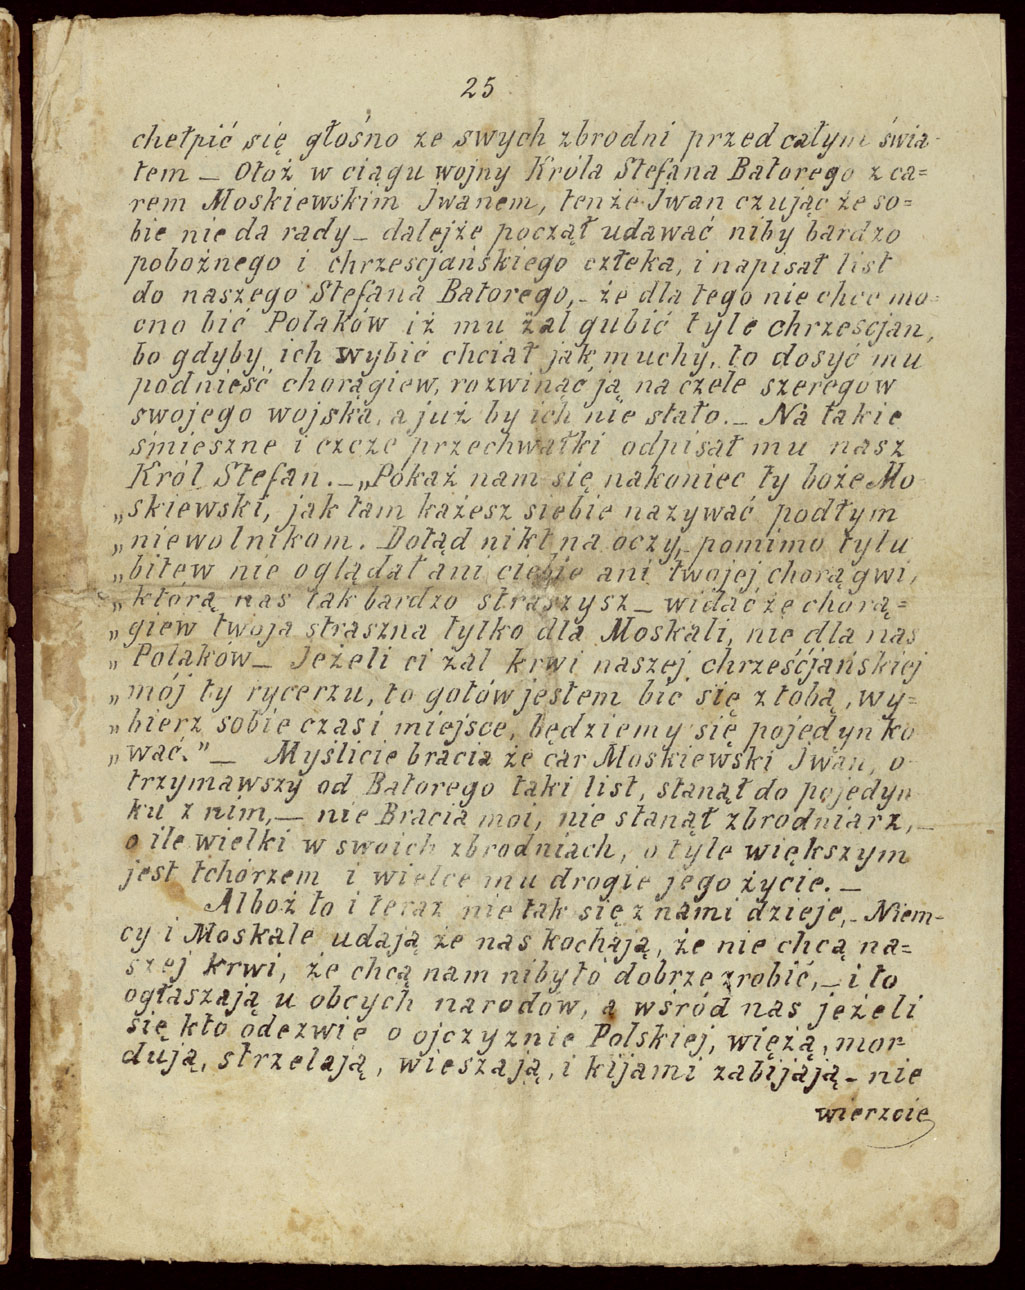 25
chełpić się głośno ze swych zbrodni przed całym świa-
tem — Otoż w ciągu wojny Króla Stefana Batorego z ca=
rem Moskiewskim Iwanem, tenże Iwan czując że so=
bie nie da rady — dalejże począł udawać niby bardzo
pobożnego i chrzescjańskiego człeka, i napisał list
do naszego Stefana Batorego, — że dla tego nie chce mo=
cno bić Polaków iż mu żal gubić tyle chrześcjan,
bo gdyby ich wybić chciał jak muchy, to dosyć mu
podnieść chorągiew, rozwinąć ją na czele szeregow
swojego wojska, a już by ich nie stało. — Na takie
śmieszne i czcze przechwałki odpisał mu nasz
Król Stefan. — „Pokaż nam się nakoniec ty boże Mo-
„skiewski, jak tam każesz siebie nazywać podłym
„niewolnikom. Dotąd nikt na oczy, pomimo tylu
„bitew nie oglądał ani ciebie ani twojej chorągwi,
„którą nas tak bardzo straszysz — widać że chorą=
„giew twoja straszna tylko dla Moskali, nie dla nas
„Polaków — Jeżeli ci żal krwi naszej chrześćjańskiej
„mój ty rycerzu, to gotów jestem bić się z tobą, wy=
„bierz sobie czas i miejsce, będziemy się pojedynko
„wać.” — Myślicie bracia że car Moskiewski Iwan, o-
trzymawszy od Batorego taki list, stanął do pojedyn
ku z nim, — nie Bracia moi, nie stanął zbrodniarz, —
o ile wielki w swoich zbrodniach, o tyle większym
jest tchórzem i wielce mu drogie jego życie. —
Alboż to i teraz nie tak się z nami dzieje, — Niem-
cy i Moskale udają że nas kochają, że nie chcą na=
szej krwi, że chcą nam niby to dobrze zrobić, — i to
ogłaszają u obcych narodów, a wsród nas jeżeli
się kto odezwie o ojczyznie Polskiej, więżą, mor-
dują, strzelają, wieszają, i kijami zabijają — nie
wierzcie